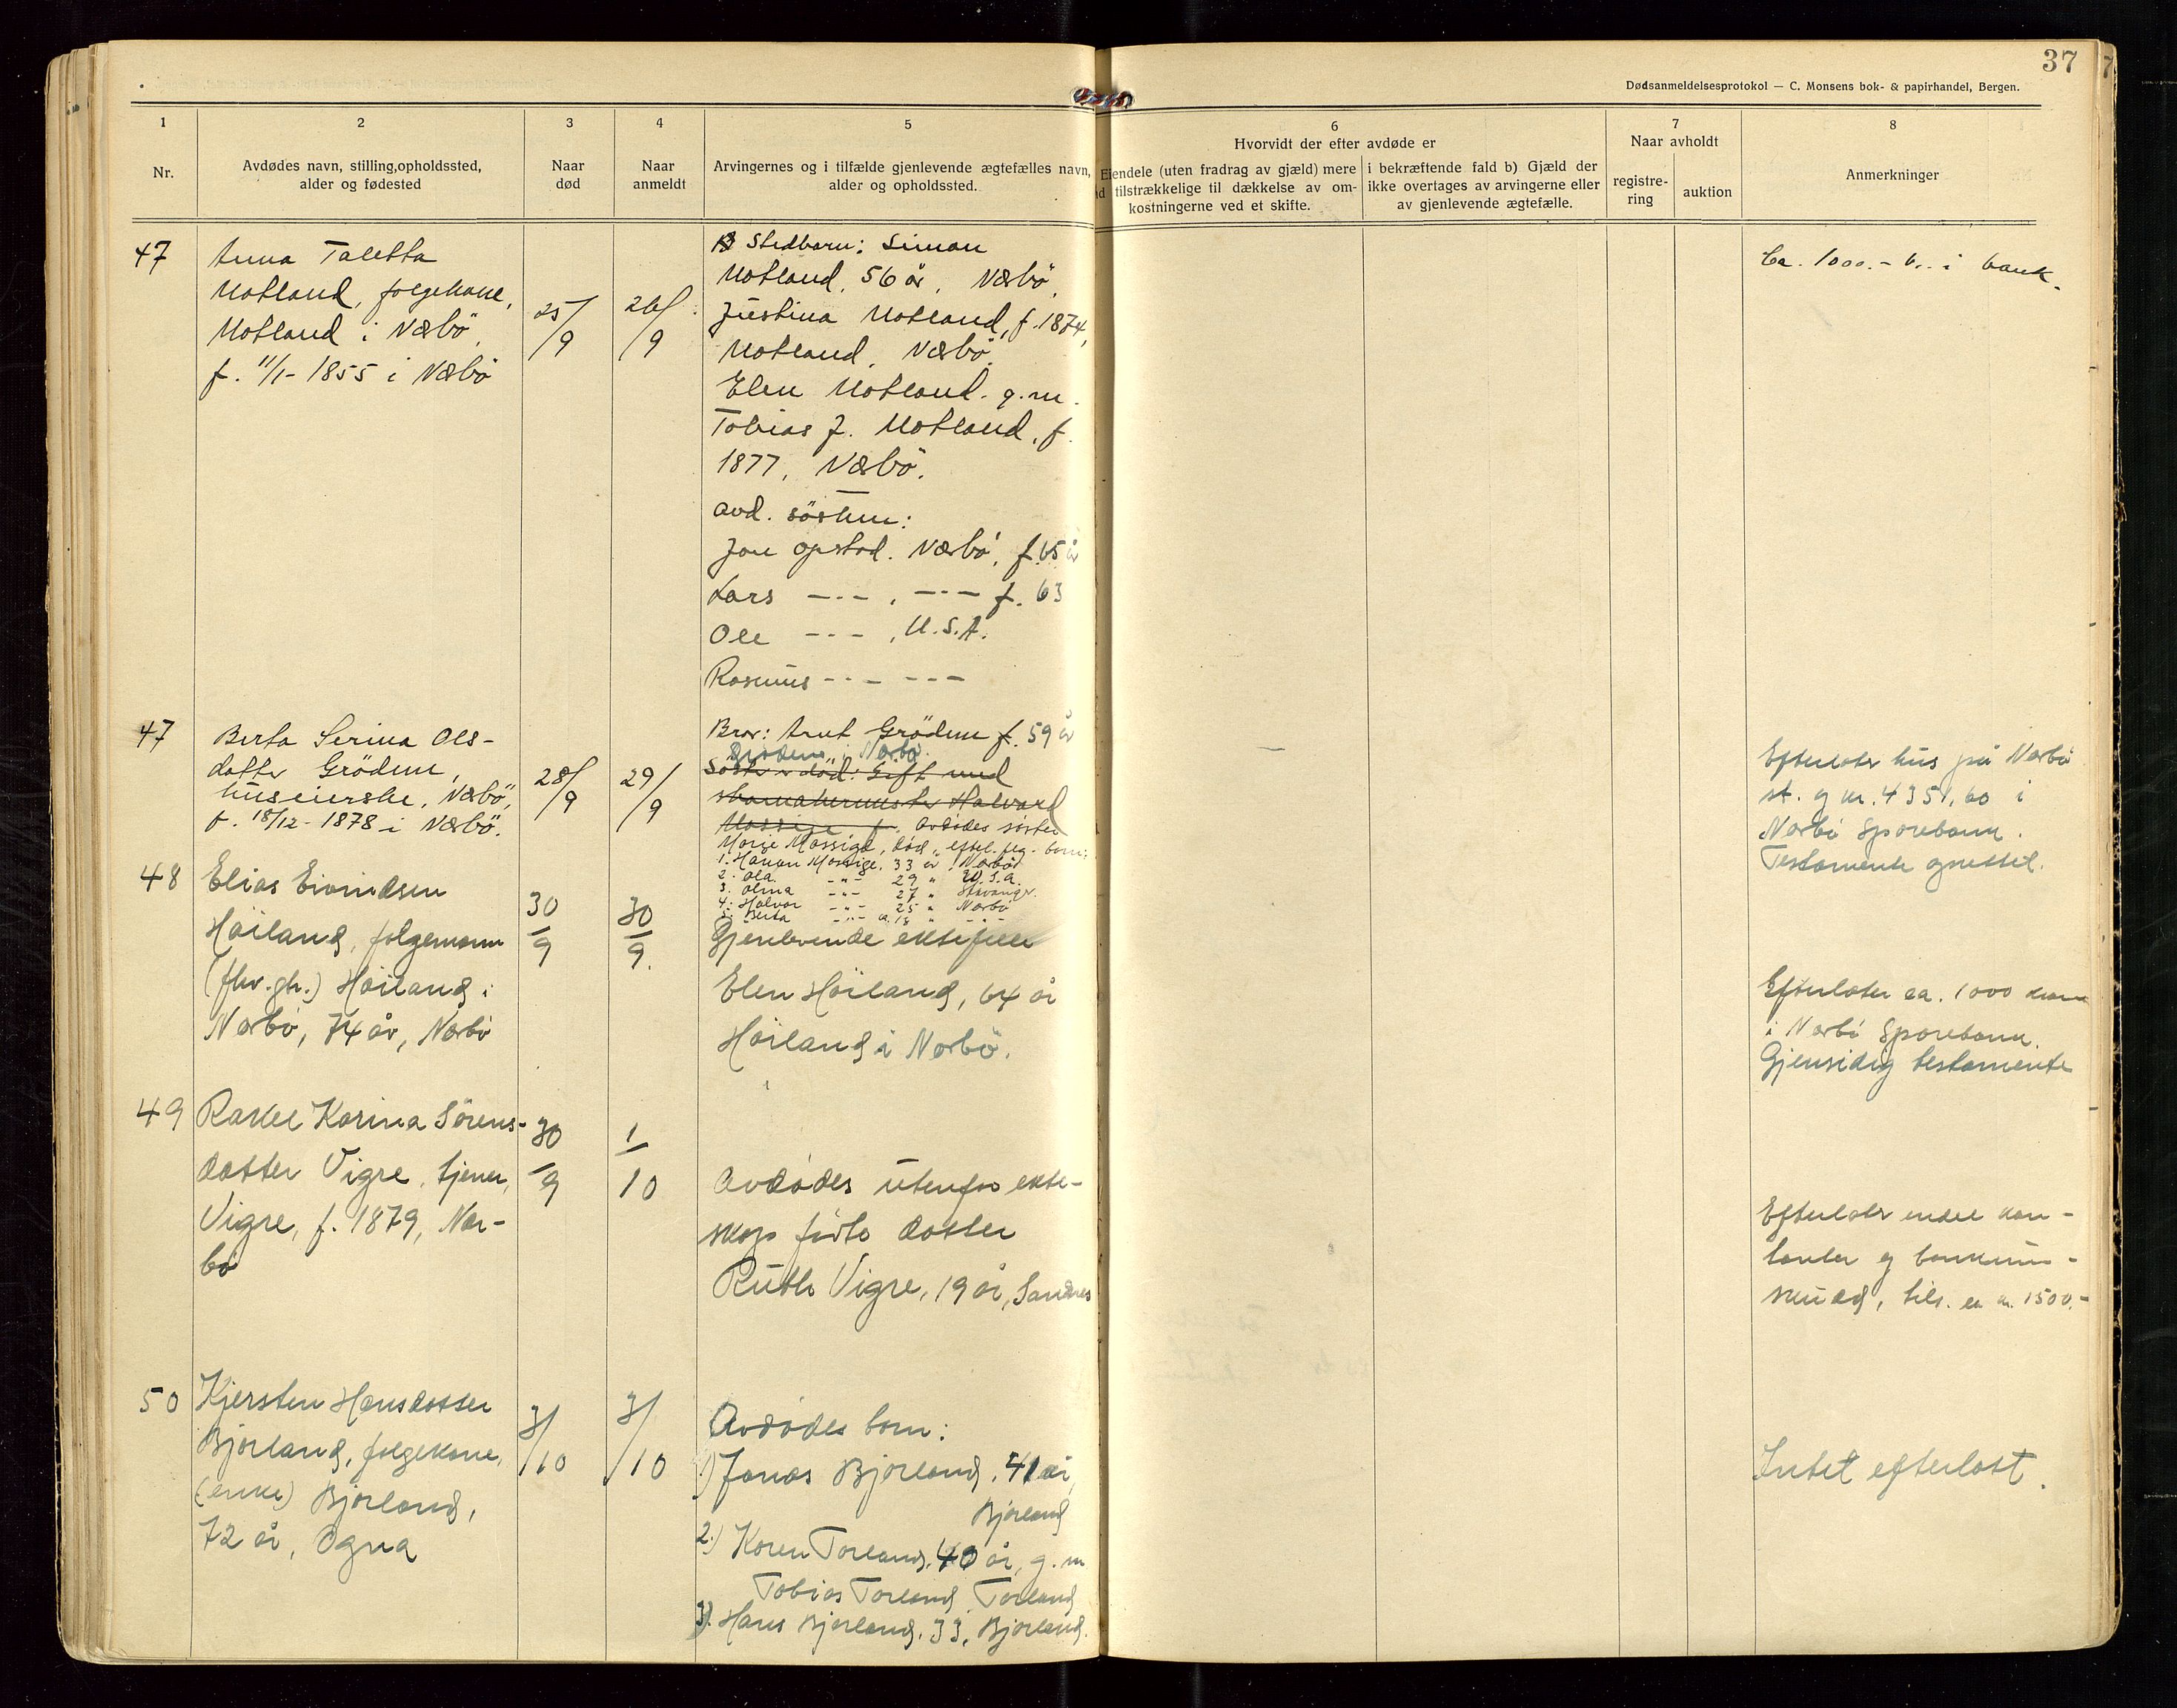 37
Dødsanmeldelsesprotokol — C. Monsens bok- & papirhandel, Bergen.
1
Nr.
2
Avdødes navn, stilling, opholdssted,
alder og fødested
3
Naar
død
4
Naar
anmeldt
5
Arvingernes og i tilfælde gjenlevende ægtefælles navn,
alder og opholdssted.
6
Hvorvidt der efter avdøde er
Eiendele (uten fradrag av gjæld) mere
tilstrækkelige til dækkelse av om-
kostningerne ved et skifte.
i bekræftende fald b) Gjæld der
ikke overtages av arvingerne eller
av gjenlevende ægtefælle.
7
Naar avholdt
registre-
ring
auktion
8
Anmerkninger
47
Anna Taletta
Motland, folgekone,
Motland i Nærbö,
f. 11/1- 1855 i Nærbö
25/9
26/9
Stedbarn: Simon
Motland, 56 år, Nærbö,
Justina Motland, f. 1874,
Motland, Nærbö,
Elen Motland. g.m.
Tobias J. Motland, f.
1877, Nærbö.
avd. söstem:
Jon Opstad. Nærbö, f. 65 år
Lars —"— , —"— f. 63
Ole —"— , U.S.A.
Rasmus —"— —"—
Ca. 1000.- kr. i bank.
47
Berta Serina Ols-
datter Grödem,
huseierske, Nærbö,
f. 18/12- 1878 i Nærbö.
28/9
29/9
Bror: Knut Grödem f. 59 år
Grödem i Nærbö.
Söster död: Gift med
skomakermester Halvard
Mossige f. Avdödes söster
Marie Mossige, död, eftel. flg. barn:
1. Hanna Mossige, 33 år, Nærbö
2. Ola —"— 29 " U.S.A.
3. Olina —"— 27 " Stavanger.
4. Halvor —"— 25 " Nærbö
5. Berta —"— a. 18 " —"—
Efterlater hus på Nærbö
st. og kr. 4351,60 i
Nærbö Sparebank.
Testamente oprettet.
48
Elias Eivindsen
Höiland, folgemann
(fhv. gbr.) Höiland i
Nærbö, 74 år, Nærbö
30/9
30/9.
Gjenlevende ektefelle
Elen Höiland, 64 år
Höiland i Nærbö.
Efterlater ca. 1000 kron
i Nærbö Sparebank.
Gjensidig testamente
49
Rakel Karina Sörens-
datter Vigre, tjener,
Vigre, f. 1879, Nær-
bö
30/9
1/10
Avdödes utenfor ekte-
skap födte datter
Ruth Vigre, 19 år, Sandnes
Efterlater endel kon-
tanter og bankinn-
skudd, tils. ca kr. 1500.-
50
Kjersten Hansdatter
Bjorland, folgekone,
(enke) Bjorland,
72 år, Ogna
3/10
3/10
Avdödes barn:
1) Jonas Bjorland, 41 år,
Bjorland
2.) Karen Torland, 40 år, g.m
Tobias Torland, Torland
3). Hans Bjorland, 33, Bjorland.
Intet efterlatt.